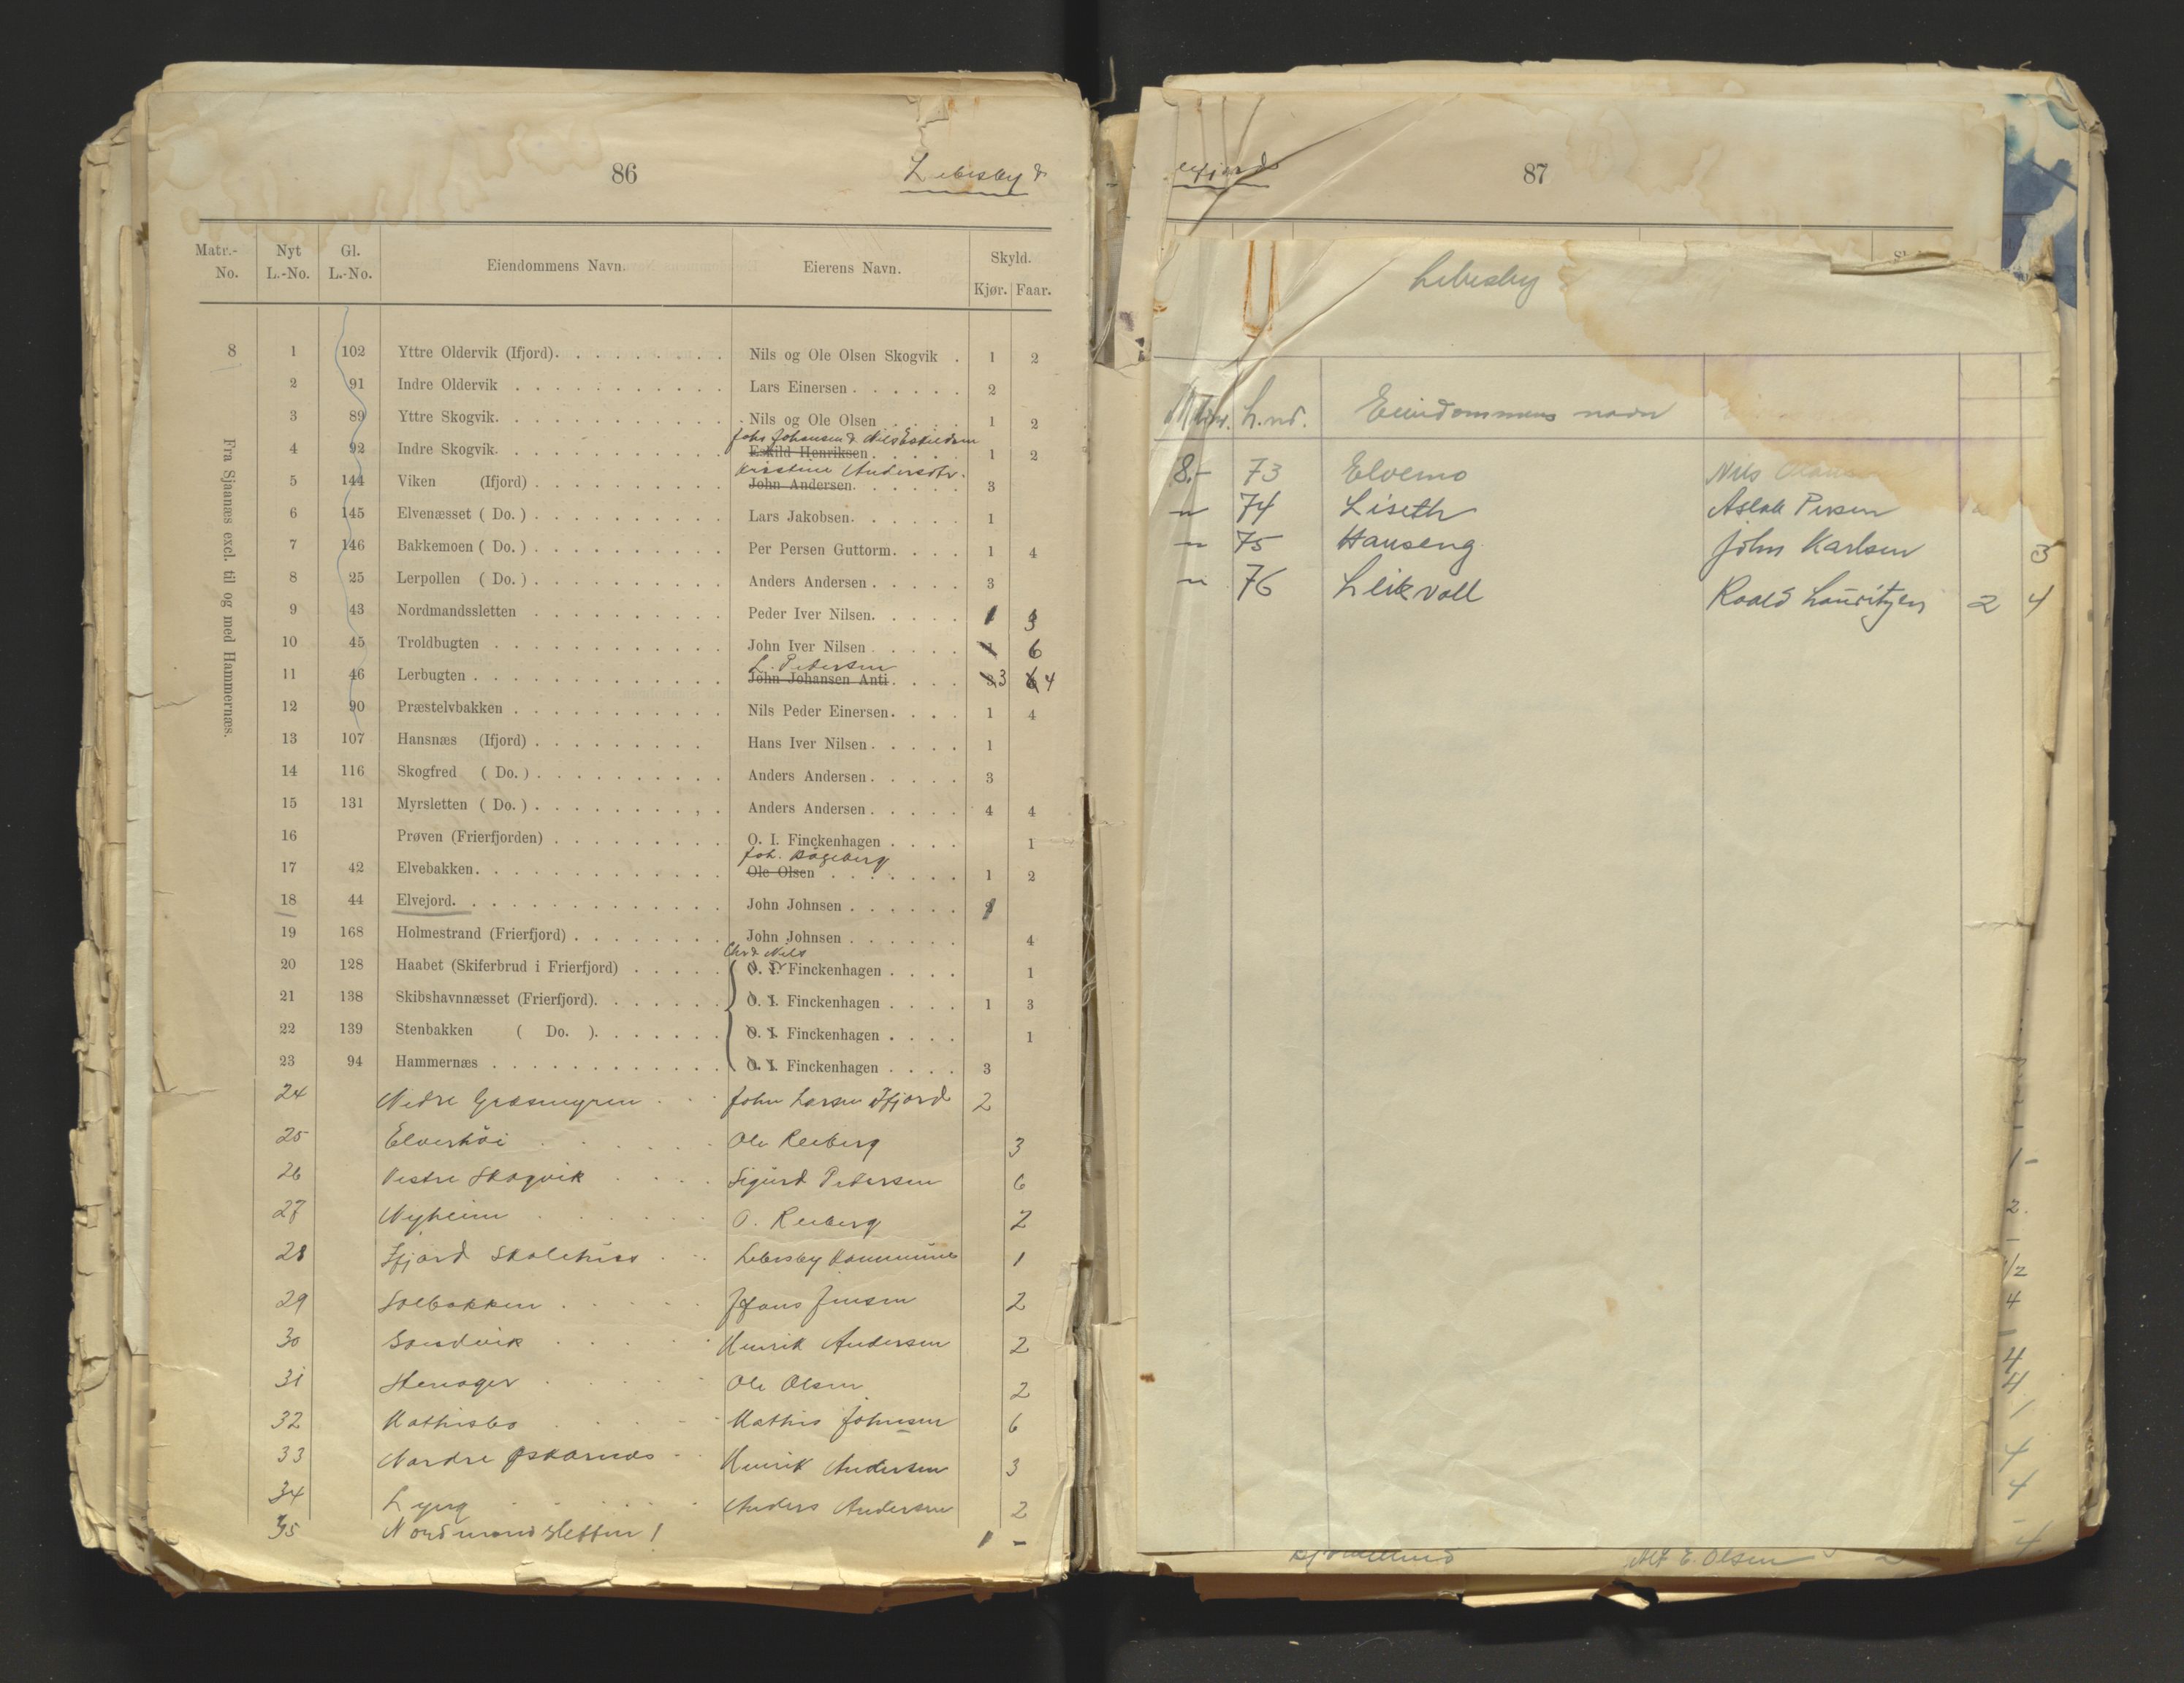 86
Lebesby &
Matr.-No. Nyt L.-No. Gl. L.-No. Eiendommens Navn. Eierens Navn. Skyld. Kjør. Faar.
Fra Sjaanæs excl. til og med Hammernæs.
8 1 102 Yttre Oldervik (Ifjord). Nils og Ole Olsen Skogvik . 1 2
2 91 Indre Oldervik Lars Einersen 2
3 89 Yttre Skogvik. Nils og Ole Olsen 1 2
Johs Johansen & Nils Eskildsen
4 92 Indre Skogvik. Eskild Henriksen 1 2
Kristine Andersdtr.
5 144 Viken (Ifjord) John Andersen. 3
6 145 Elvenæsset ( Do. ) Lars Jakobsen. 1
7 146 Bakkemoen ( Do. ) Per Persen Guttorm. 1 4
8 25 Lerpollen ( Do. ) Anders Andersen 3
9 43 Nordmandssletten Peder Iver Nilsen. 1 3
10 45 Troldbugten John Iver Nilsen 6
L. Petersen
11 46 Lerbugten John Johansen Anti 3 4
12 90 Præstelvbakken Nils Peder Einersen. 1 4
13 107 Hansnæs (Ifjord) Hans Iver Nilsen 1
14 116 Skogfred ( Do. ) Anders Andersen 3
15 131 Myrsletten ( Do. ) Anders Andersen 4 4
16 Prøven (Frierfjorden) O. I. Finckenhagen 1
Joh. Bogeberg
17 42 Elvebakken. Ole Olsen 1 2
18 44 Elvejord. John Johnsen 1
19 168 Holmestrand (Frierfjord) John Johnsen 4
Chrd. Nils
20 128 Haabet (Skiferbrud i Frierfjord) O. I. Finckenhagen 1
21 138 Skibshavnnæsset (Frierfjord). O. I. Finckenhagen 1 3
22 139 Stenbakken ( Do. ). O. I. Finckenhagen 1
23 94 Hammernæs O. I. Finckenhagen 3
24 Nedre Græsmyren John Larsen Ifjord 2
25 Elverhöi Ole Reeberg 3
26 Vestre Skogvik Sigurd Petersen 6
27 Nyheim O. Reeberg 2
28 Ifjord Skolehus Lebesby Kommune 1
29 Solbakken Hans Jensen 2
30 Sandvik Henrik Andersen 2
31 Stenager Ole Olsen 2
32 Mathisbo Mathis Johnsen 6
33 Nordre Oskarnæs Henrik Andersen 3
34 Lyng Anders Andersen 2
35 Nordmandsletten 1 1 -
87
Lebesby
Mtrnr. L.nr. Eiendommens navn
8.- 73 Elvemo Nils
" 74 Liseth Aslak Persen
" 75 Hauseng John Karlsen 3
" 76 Leikvoll Roald Lauritzen 2 4
Alf E. Olsen